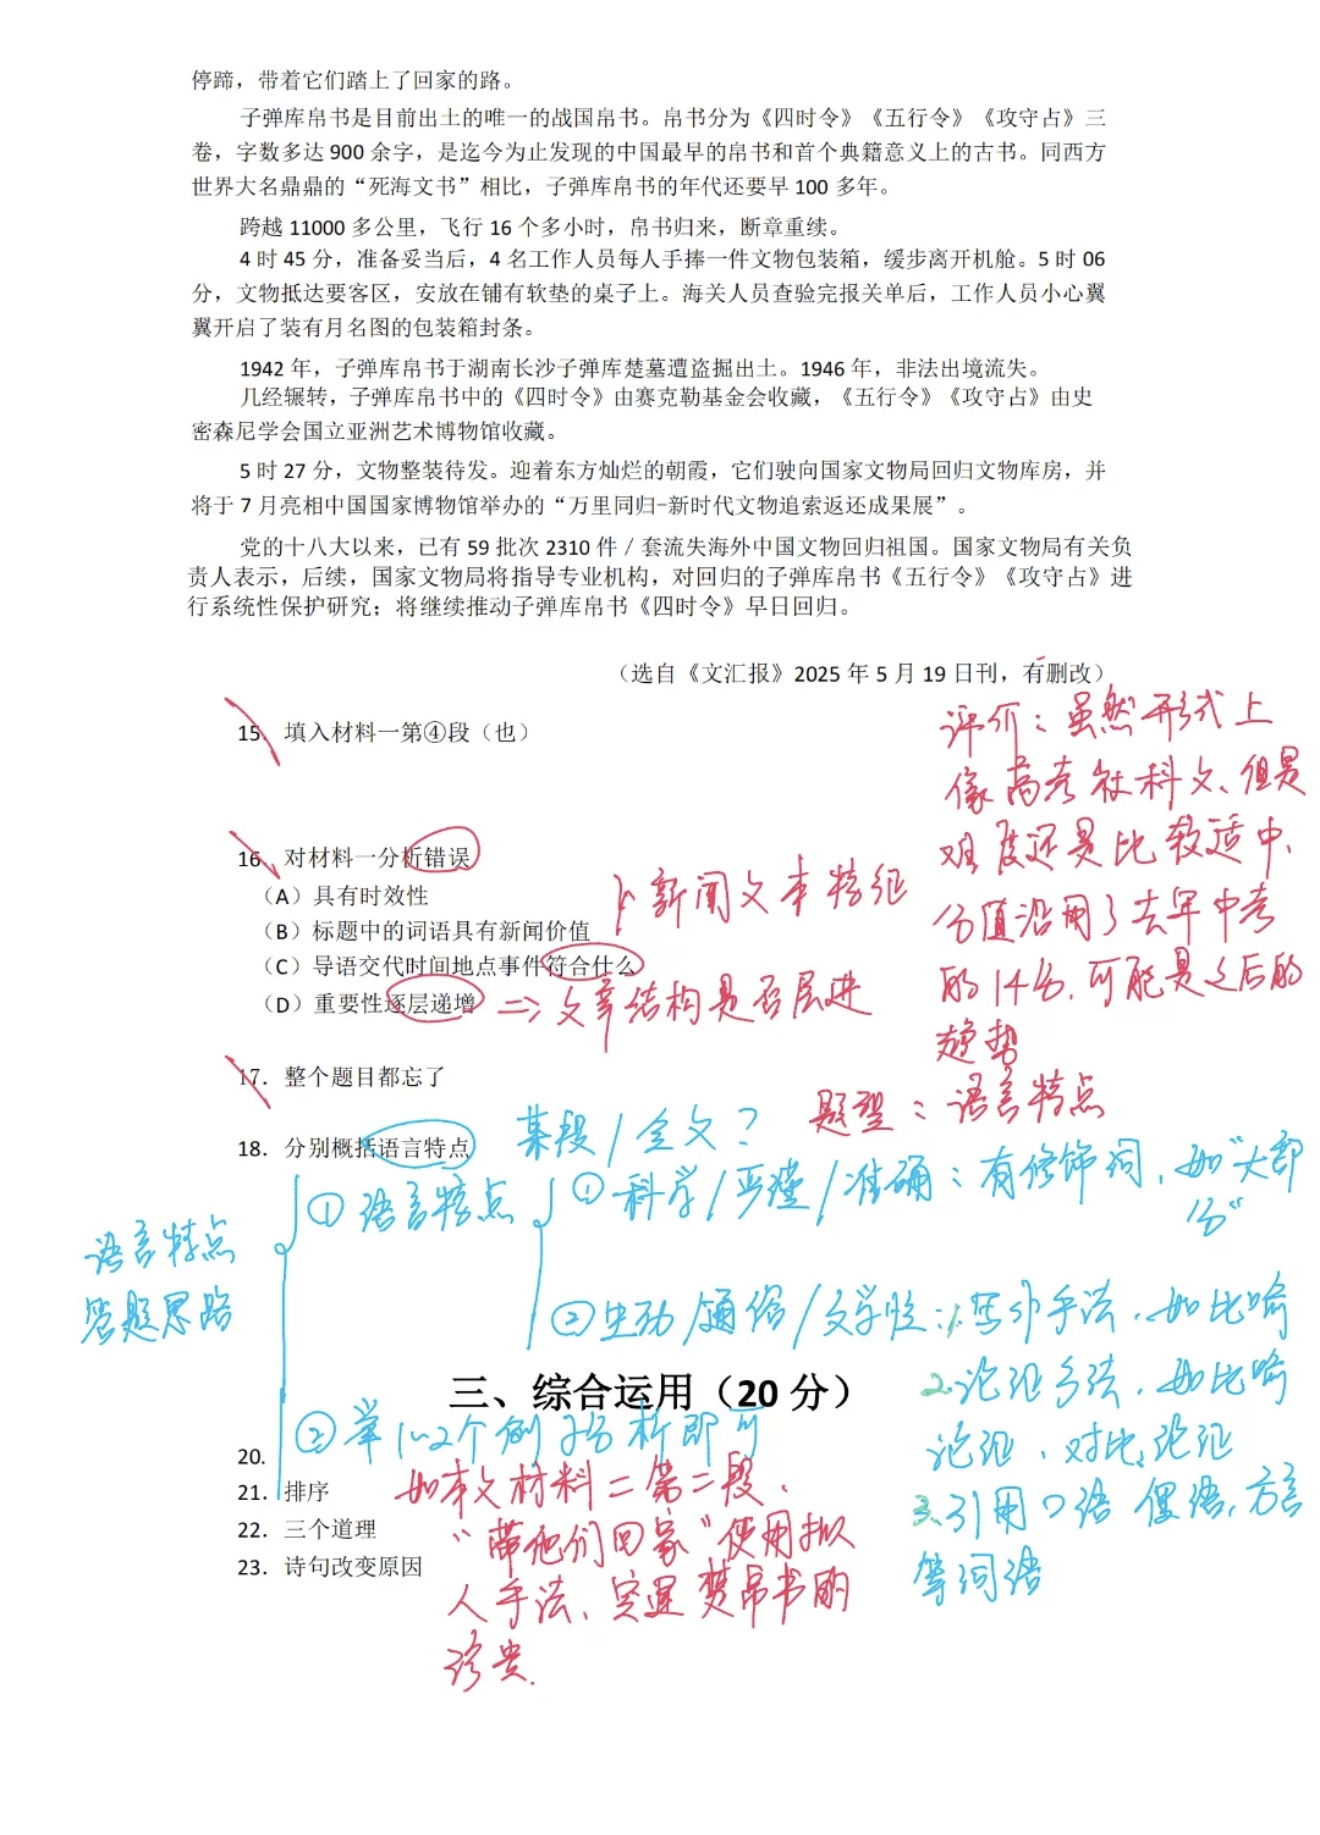 停蹄，带着它们踏上了回家的路。
子弹库帛书是目前出土的唯一的战国帛书。帛书分为《四时令》《五行令》《攻守占》三
卷，字数多达 900 余字，是迄今为止发现的中国最早的帛书和首个典籍意义上的古书。同西方
世界大名鼎鼎的“死海文书”相比，子弹库帛书的年代还要早 100 多年。
跨越 11000 多公里，飞行 16 个多小时，帛书归来，断章重续。
4 时 45 分，准备妥当后，4 名工作人员每人手捧一件文物包装箱，缓步离开机舱。5 时 06
分，文物抵达要客区，安放在铺有软垫的桌子上。海关人员查验完报关单后，工作人员小心翼
翼开启了装有月名图的包装箱封条。
1942 年，子弹库帛书于湖南长沙子弹库楚墓遭盗掘出土。1946 年，非法出境流失。
几经辗转，子弹库帛书中的《四时令》由赛克勒基金会收藏，《五行令》《攻守占》由史
密森尼学会国立亚洲艺术博物馆收藏。
5 时 27 分，文物整装待发。迎着东方灿烂的朝霞，它们驶向国家文物局回归文物库房，并
将于 7 月亮相中国国家博物馆举办的“万里同归-新时代文物追索返还成果展”。
党的十八大以来，已有 59 批次 2310 件 / 套流失海外中国文物回归祖国。国家文物局有关负
责人表示，后续，国家文物局将指导专业机构，对回归的子弹库帛书《五行令》《攻守占》进
行系统性保护研究；将继续推动子弹库帛书《四时令》早日回归。
（选自《文汇报》2025 年 5 月 19 日刊，有删改）
15. 填入材料一第④段（也）
评价：虽然形式上
像高考社科文、但是
难度还是比较适中、
分值沿用了去年中考
的14分，可能是之后的
趋势
16. 对材料一分析错误
（A）具有时效性
（B）标题中的词语具有新闻价值
（C）导语交代时间地点事件符合什么
（D）重要性逐层递增
新闻文本特征
=> 文章结构是否层进
17. 整个题目都忘了
题型：语言特点
18. 分别概括语言特点
某段/全文？
语言特点
答题思路
①语言特点
①科学/严谨/准确：有修饰词，如“大部
分”
②生动/通俗/文学性：1.写作手法，如比喻
2.论证方法，如比喻
论证、对比论证
3.引用口语 俚语、方言
等词语
②举1~2个例子分析即可
如本文材料二第二段、
“带他们回家”使用拟
人手法、突显楚帛书的
珍贵.
三、综合运用（20 分）
20.
21. 排序
22. 三个道理
23. 诗句改变原因